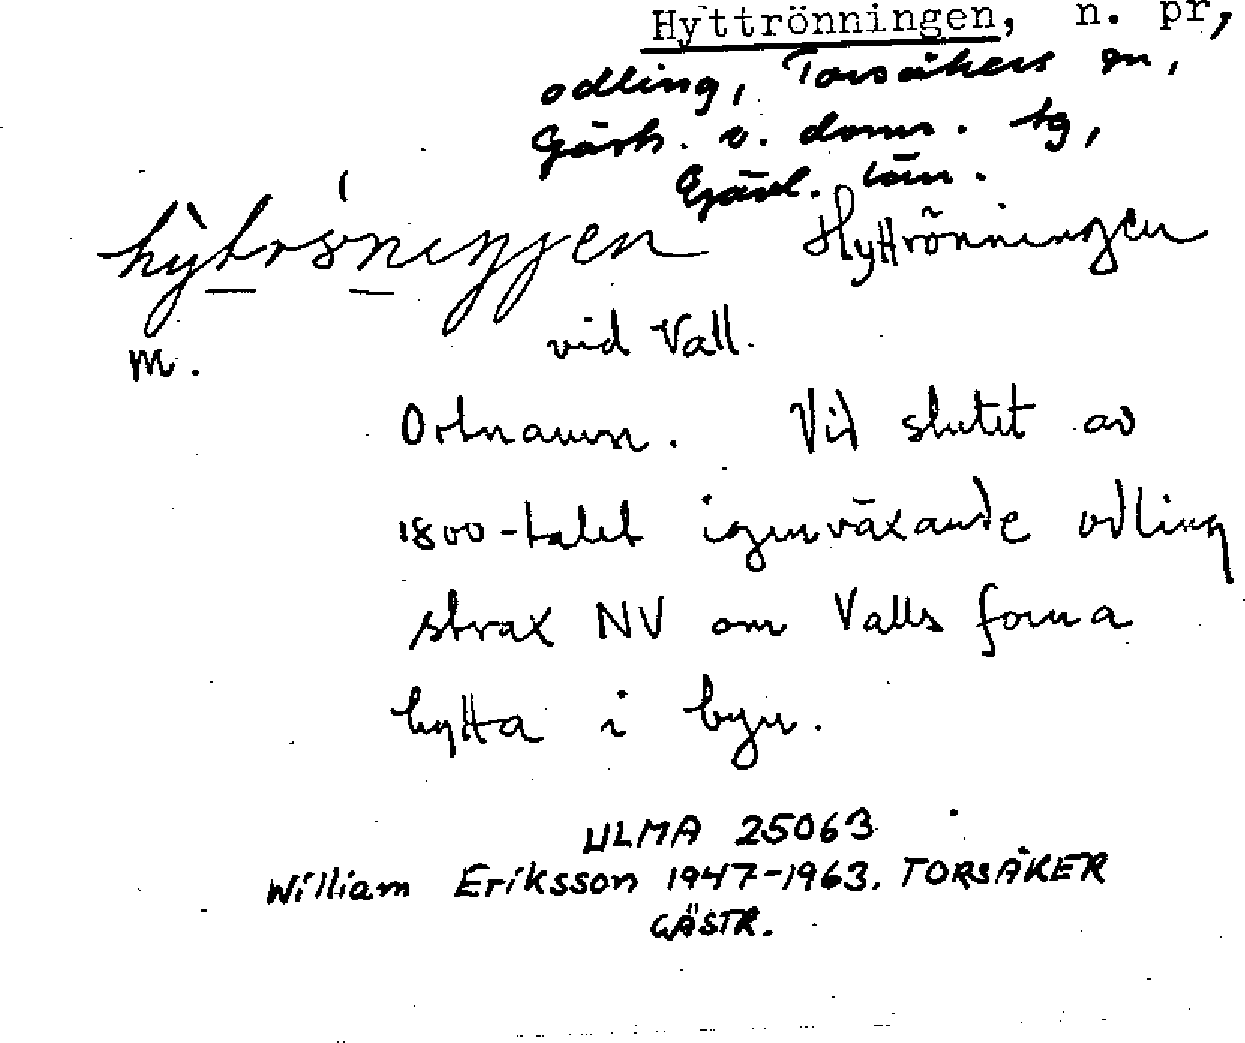 Hyttrönningen, n. pr,
odling, Torsåkers sn,
Gästr. ö. doms. tg,
Gävl. län.
Hyttrönningen
m. vid Vall.
Ortnamn. Vid slutet av
1800-talet igenväxande odling
strax NV om Valls forna
hytta i byn.
ULMA 25063
William Eriksson 1947-1963. TORSÅKER
GÄSTR.